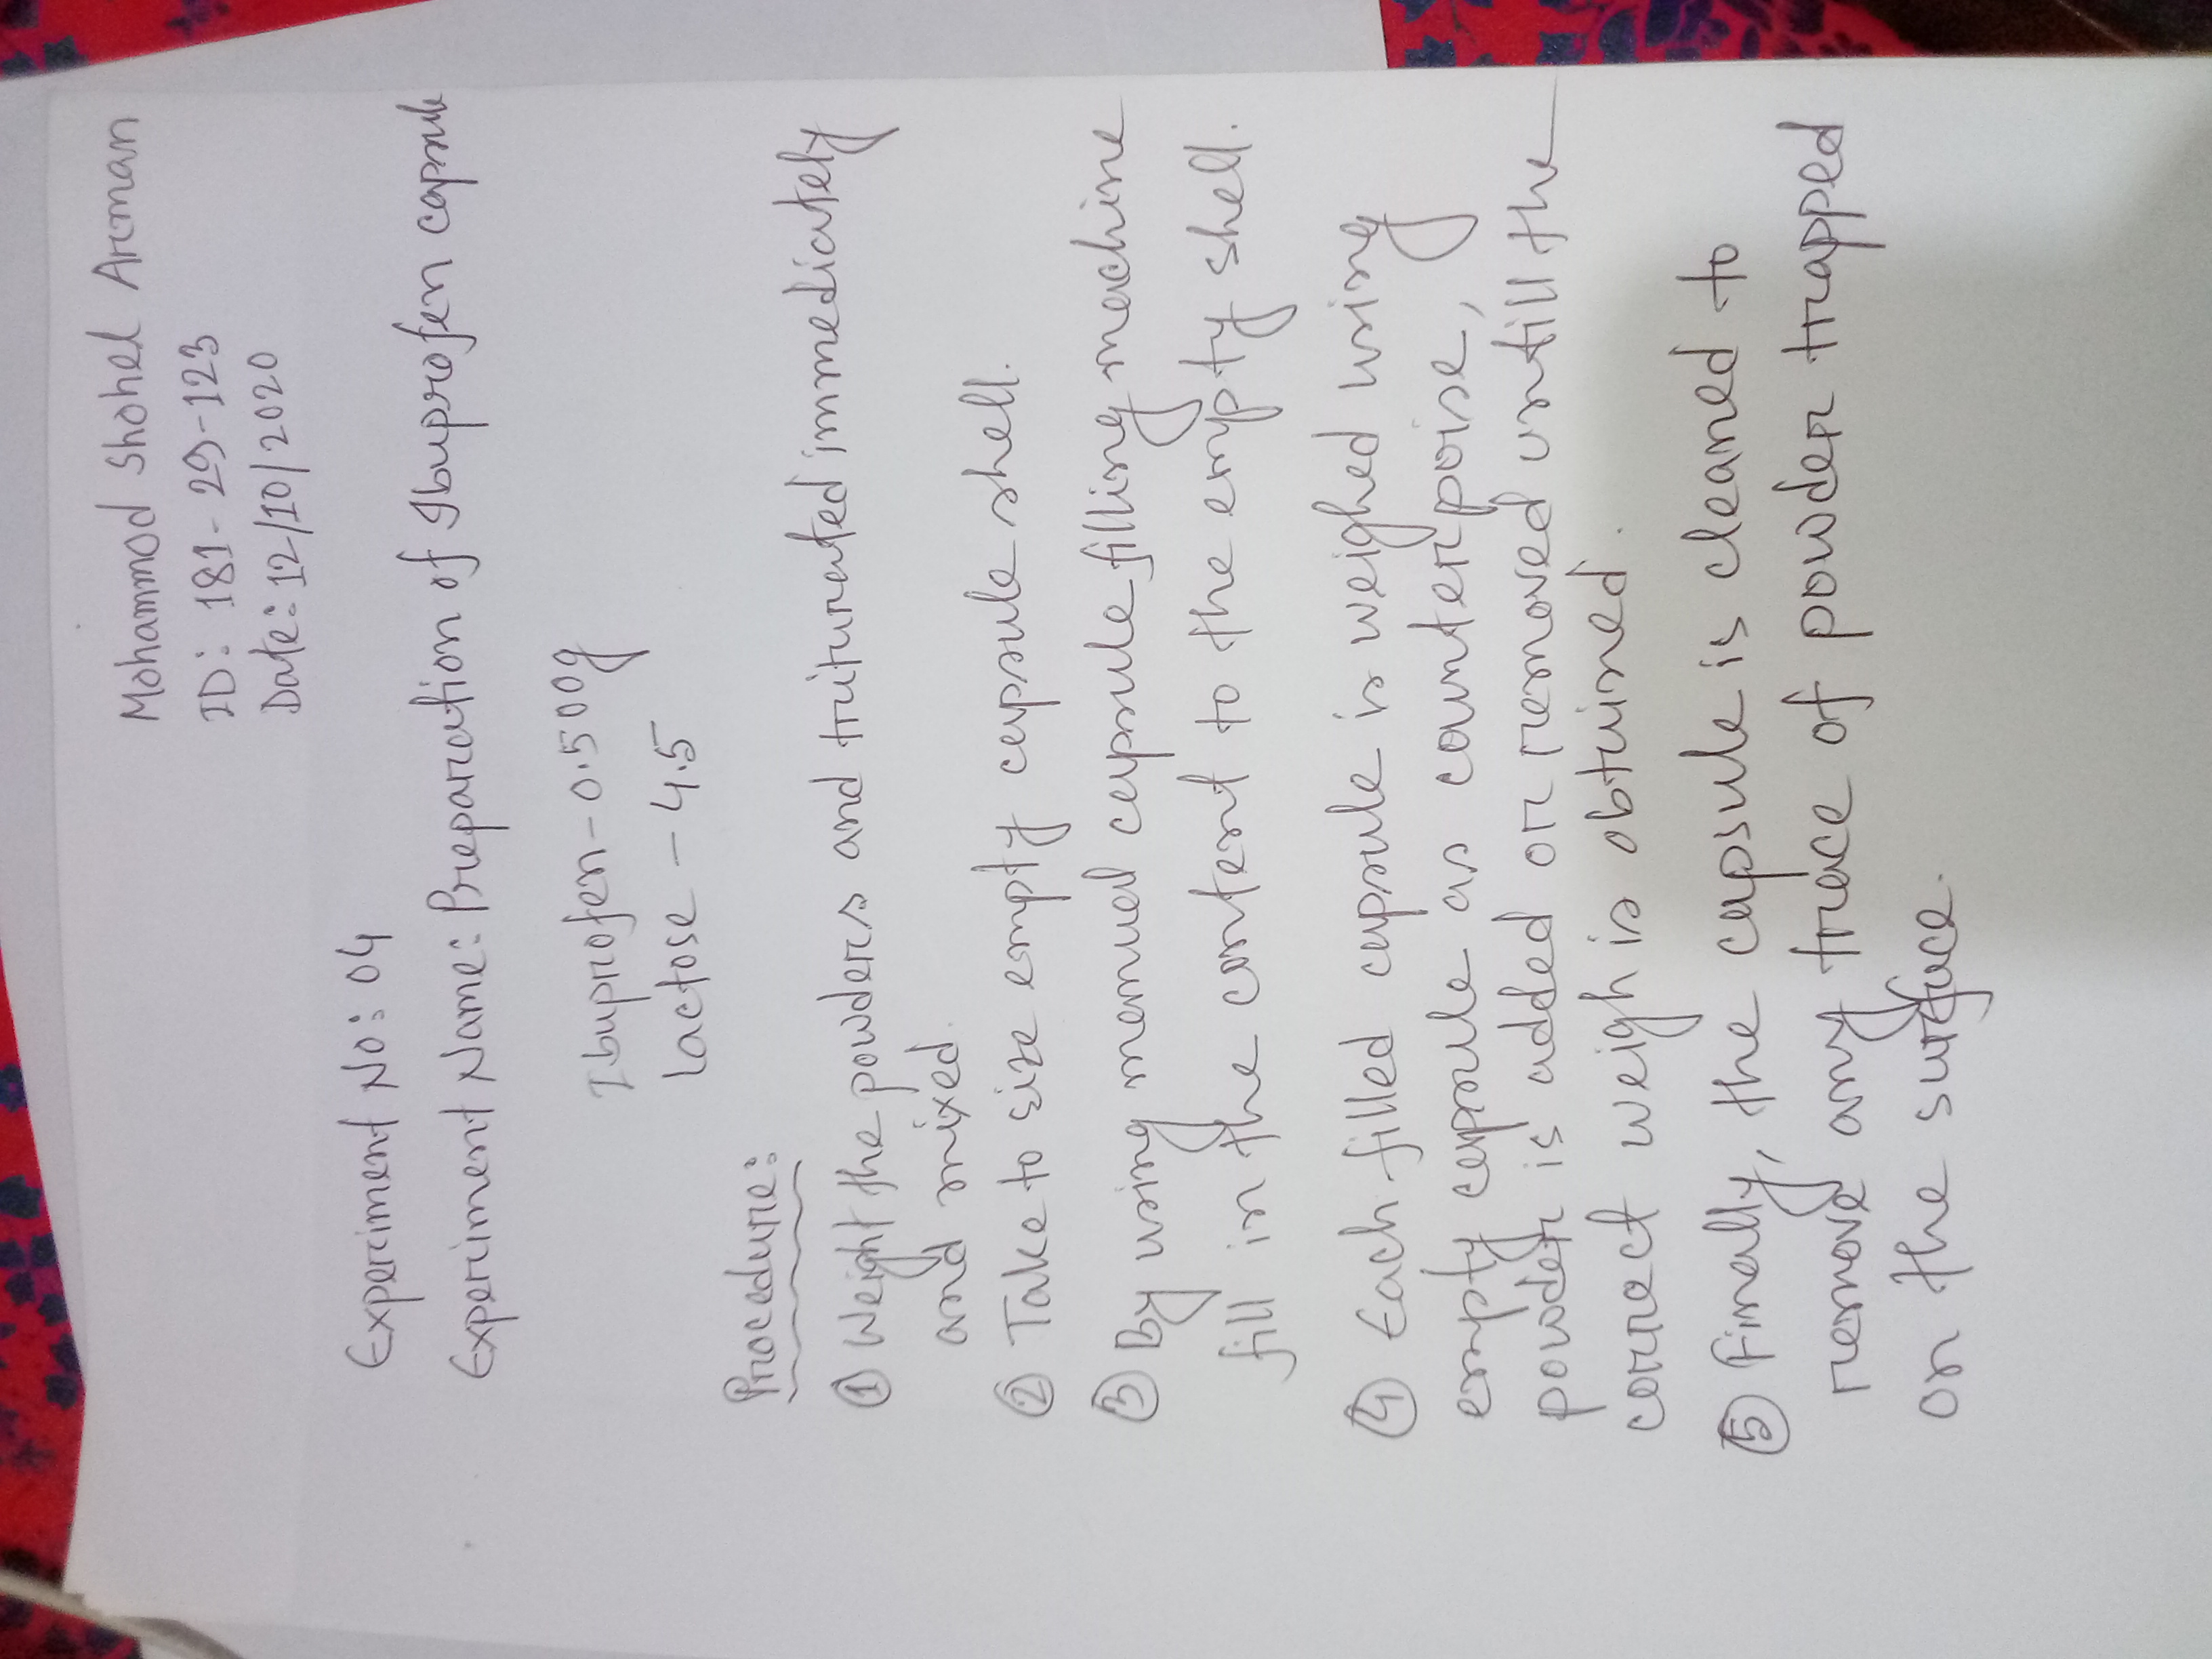 Mohammod Shohel Arman
ID: 181-29-123
Date: 12/10/2020
Experiment No: 04
Experiment Name: Preparation of Ibuprofen capsule
Ibuprofen - 0.500g
Lactose - 4.5
Procedure:
① Weight the powders and triturated immediately
and mixed.
② Take to size empty capsule shell.
③ By using manual capsule filling machine
fill in the content to the empty shell.
④ Each filled capsule is weighed using
empty capsule as counterpoise,
powder is added or removed untill the
correct weigh is obtained.
⑤ Finally, the capsule is cleaned to
remove any trace of powder trapped
on the surface.